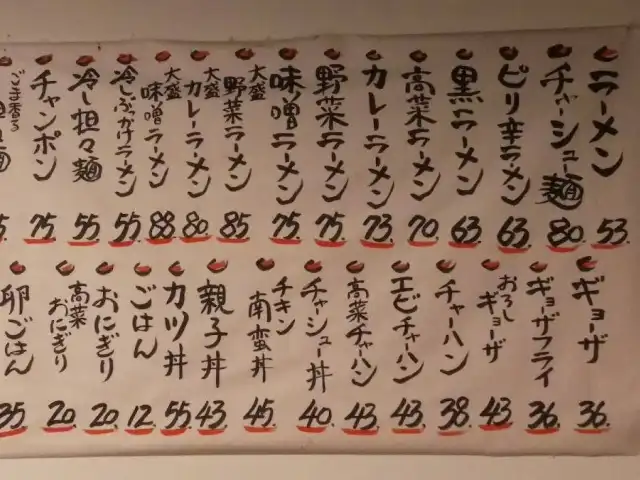 ラーメン 53.
チャーシュー麺 80.
ピリ辛ラーメン 63.
黒ラーメン 63.
高菜ラーメン 70.
カレーラーメン 73
野菜ラーメン 75.
味噌ラーメン 75.
大盛野菜ラーメン 85
大盛カレーラーメン 80.
大盛味噌ラーメン 88.
冷しぶっかけラーメン 55.
冷し担々麺 55
チャンポン 75.
ごま香る
ギョーザ 36.
ギョーザフライ 36.
おろしギョーザ 43
チャーハン 38.
エビチャーハン 43.
高菜チャーハン 43.
チャーシュー丼 40.
チキン南蛮丼 45.
親子丼 43.
カツ丼 55
ごはん 12
おにぎり 20.
高菜おにぎり 20.
卵ごはん 35